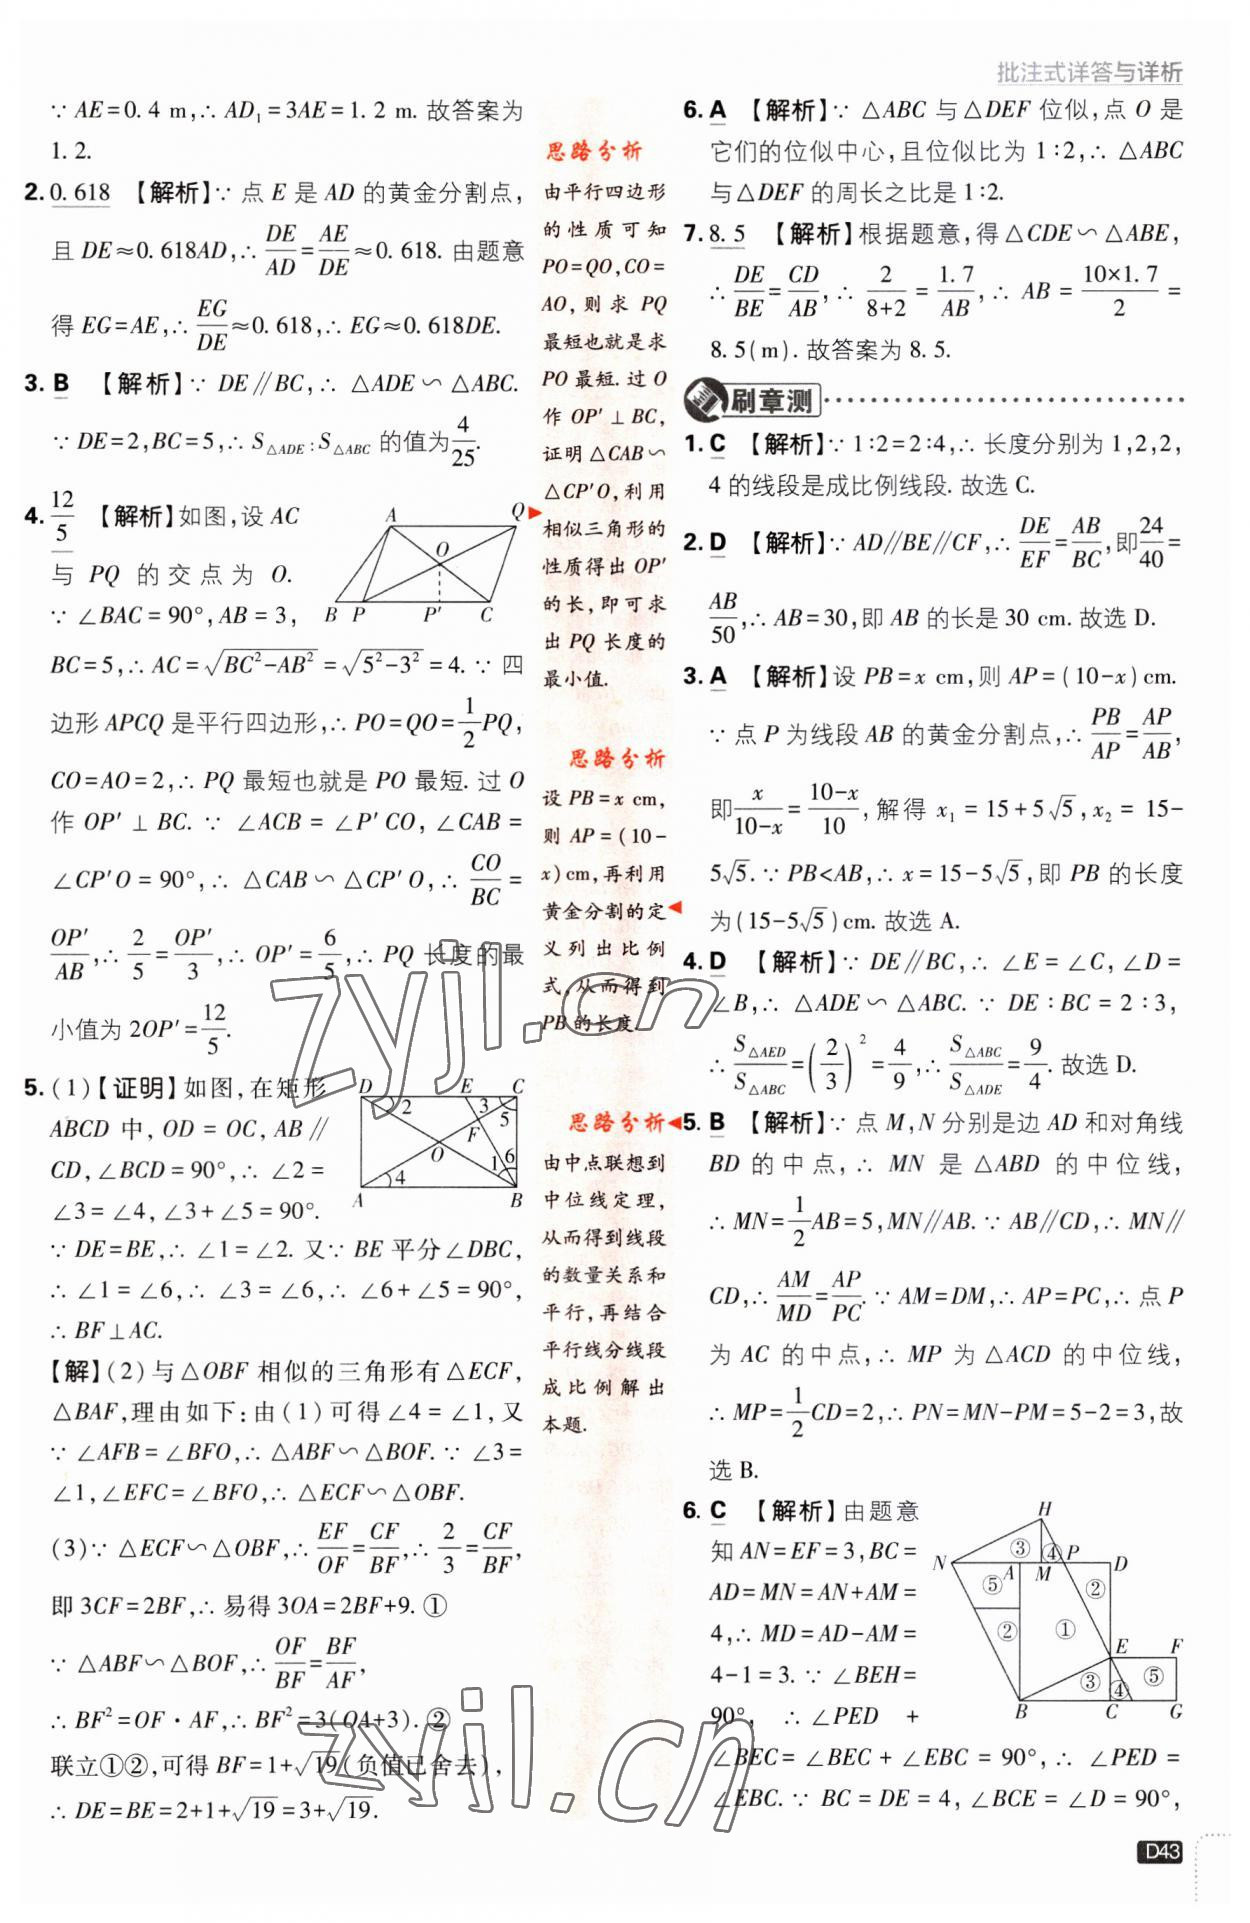 批注式详答与详析
∵ AE=0.4 m,∴ AD₁=3AE=1.2 m. 故答案为
1.2.
2. 0.618 【解析】∵ 点 E 是 AD 的黄金分割点,
且 DE≈0.618AD,∴ DE/AD=AE/DE≈0.618. 由题意
得 EG=AE,∴ EG/DE≈0.618,∴ EG≈0.618DE.
3. B 【解析】∵ DE∥BC,∴ △ADE∽△ABC.
∵ DE=2,BC=5,∴ S△ADE:S△ABC 的值为4/25.
4. 12/5 【解析】如图,设 AC
与 PQ 的交点为 O.
∵ ∠BAC=90°,AB=3,
A Q O B P P′ C
BC=5,∴ AC=√(BC²-AB²)=√(5²-3²)=4. ∵ 四
边形 APCQ 是平行四边形,∴ PO=QO=1/2PQ,
CO=AO=2,∴ PQ 最短也就是 PO 最短. 过 O
作 OP′⊥BC. ∵ ∠ACB=∠P′CO,∠CAB=
∠CP′O=90°,∴ △CAB∽△CP′O,∴ CO/BC=
OP′/AB,∴ 2/5=OP′/3,∴ OP′=6/5,∴ PQ 长度的最
小值为 2OP′=12/5.
5. (1)【证明】如图,在矩形
ABCD 中,OD=OC,AB∥
CD,∠BCD=90°,∴ ∠2=
∠3=∠4,∠3+∠5=90°.
D E C 2 3 5 F O 4 1 6 A B
∵ DE=BE,∴ ∠1=∠2. 又∵ BE 平分∠DBC,
∴ ∠1=∠6,∴ ∠3=∠6,∴ ∠6+∠5=90°,
∴ BF⊥AC.
【解】(2)与△OBF 相似的三角形有△ECF,
△BAF,理由如下:由(1)可得∠4=∠1,又
∵ ∠AFB=∠BFO,∴ △ABF∽△BOF. ∵ ∠3=
∠1,∠EFC=∠BFO,∴ △ECF∽△OBF.
(3)∵ △ECF∽△OBF,∴ EF/OF=CF/BF,∴ 2/3=CF/BF,
即 3CF=2BF,∴ 易得 3OA=2BF+9. ①
∵ △ABF∽△BOF,∴ OF/BF=BF/AF,
∴ BF²=OF·AF,∴ BF²=3(OA+3). ②
联立①②,可得 BF=1+√19(负值已舍去),
∴ DE=BE=2+1+√19=3+√19.
思路分析
由平行四边形
的性质可知
PO=QO,CO=
AO,则求 PQ
最短也就是求
PO 最短. 过 O
作 OP′⊥BC,
证明△CAB∽
△CP′O,利用
相似三角形的
性质得出 OP′
的长,即可求
出 PQ 长度的
最小值.
思路分析
设 PB=x cm,
则 AP=(10-
x)cm,再利用
黄金分割的定
义列出比例
式,从而得到
PB 的长度.
思路分析
由中点联想到
中位线定理,
从而得到线段
的数量关系和
平行,再结合
平行线分线段
成比例解出
本题.
6. A 【解析】∵ △ABC 与△DEF 位似,点 O 是
它们的位似中心,且位似比为 1:2,∴ △ABC
与△DEF 的周长之比是 1:2.
7. 8.5 【解析】根据题意,得△CDE∽△ABE,
∴ DE/BE=CD/AB,∴ 2/(8+2)=1.7/AB,∴ AB=(10×1.7)/2=
8.5(m). 故答案为 8.5.
刷章测
1. C 【解析】∵ 1:2=2:4,∴ 长度分别为 1,2,2,
4 的线段是成比例线段. 故选 C.
2. D 【解析】∵ AD∥BE∥CF,∴ DE/EF=AB/BC,即24/40=
AB/50,∴ AB=30,即 AB 的长是 30 cm. 故选 D.
3. A 【解析】设 PB=x cm,则 AP=(10-x)cm.
∵ 点 P 为线段 AB 的黄金分割点,∴ PB/AP=AP/AB,
即x/(10-x)=(10-x)/10,解得 x₁=15+5√5,x₂=15-
5√5. ∵ PB<AB,∴ x=15-5√5,即 PB 的长度
为(15-5√5)cm. 故选 A.
4. D 【解析】∵ DE∥BC,∴ ∠E=∠C,∠D=
∠B,∴ △ADE∽△ABC. ∵ DE:BC=2:3,
∴ S△AED/S△ABC=(2/3)²=4/9,∴ S△ABC/S△ADE=9/4. 故选 D.
5. B 【解析】∵ 点 M,N 分别是边 AD 和对角线
BD 的中点,∴ MN 是△ABD 的中位线,
∴ MN=1/2AB=5,MN∥AB. ∵ AB∥CD,∴ MN∥
CD,∴ AM/MD=AP/PC. ∵ AM=DM,∴ AP=PC,∴ 点 P
为 AC 的中点,∴ MP 为△ACD 的中位线,
∴ MP=1/2CD=2,∴ PN=MN-PM=5-2=3,故
选 B.
6. C 【解析】由题意
知 AN=EF=3,BC=
AD=MN=AN+AM=
4,∴ MD=AD-AM=
4-1=3. ∵ ∠BEH=
90°, ∴ ∠PED +
H N ③ ④ P A M D ⑤ ② ② ① E F ③ ④ ⑤ B C G
∠BEC=∠BEC+∠EBC=90°,∴ ∠PED=
∠EBC. ∵ BC=DE=4,∠BCE=∠D=90°,
D43
zyjl.cn
zyjl.cn